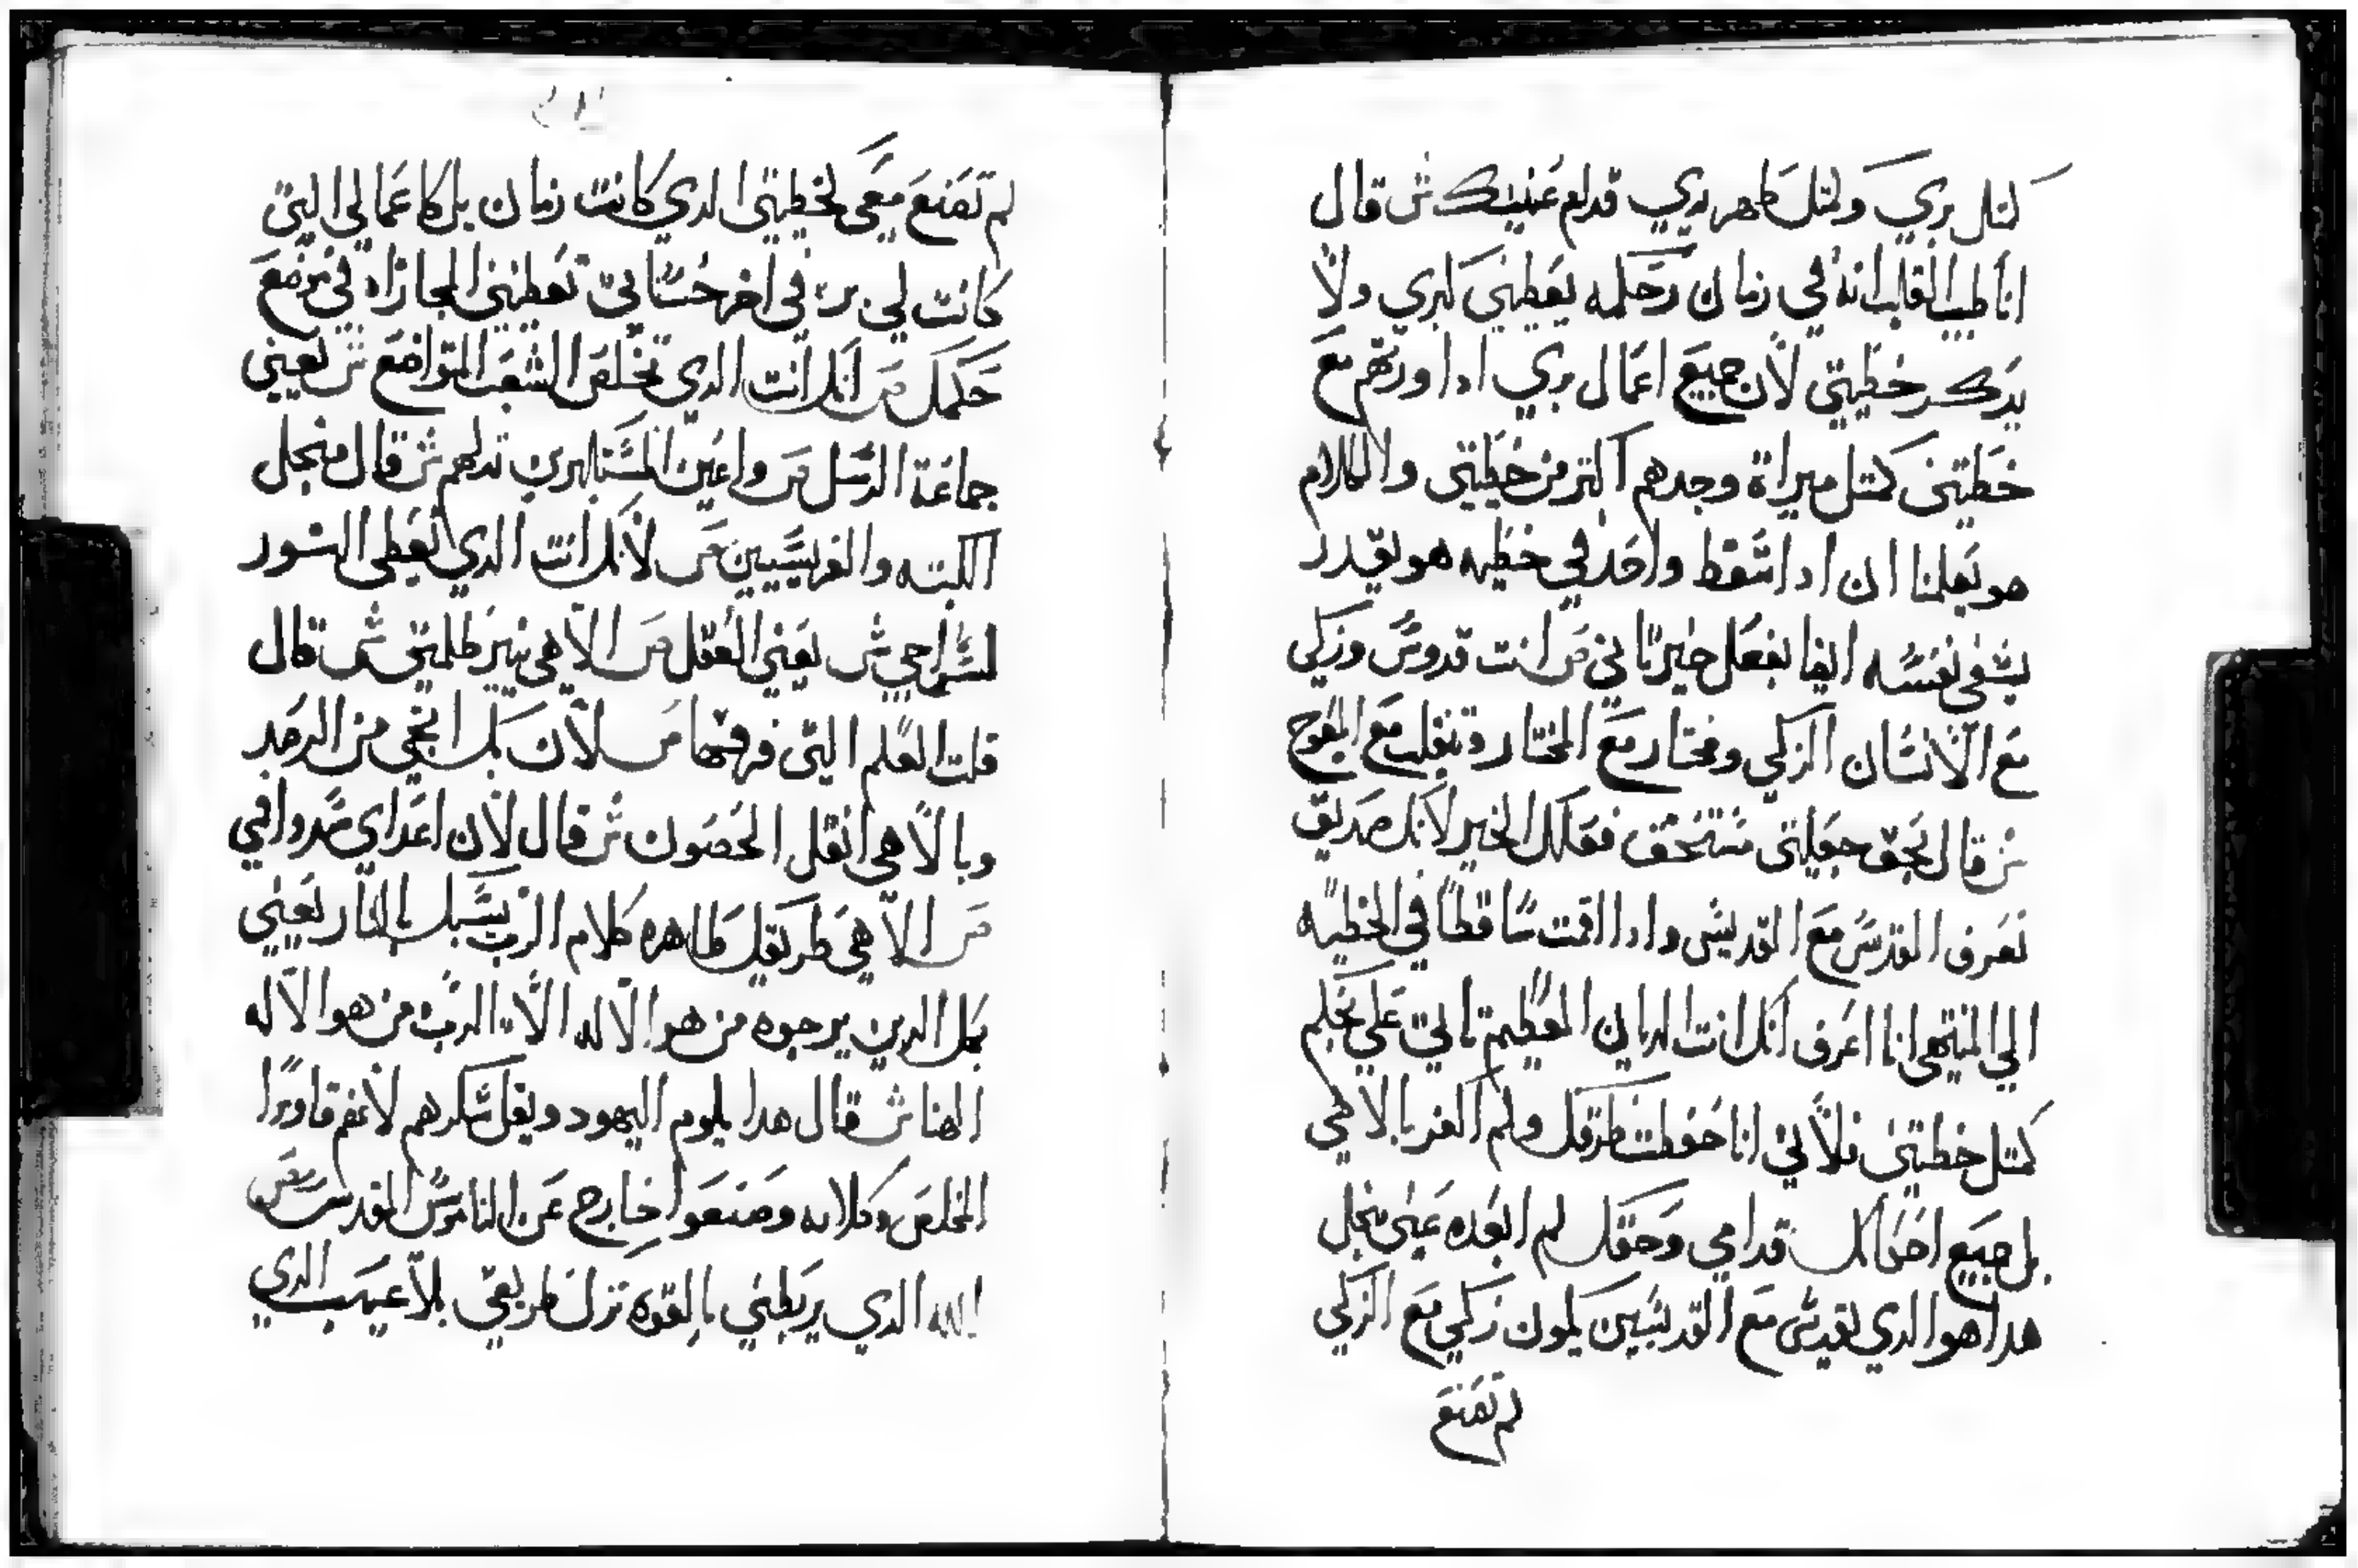 كمثل بري وكمثل طهر يدي قدام عنيك ش قال
انا طيب القلب انه في زمان رحمه يعطيني كبري ولا
يدكر خطيتي لان جميع اعمال بري ادا اورنهم مع
خطيتي كمثل ميراة وجدهم اكتر من خطيتي والكلام
هو يعلمنا ان ادا سقط واحد في خطيه هو يقدر
يشفي نفسه ايضا بفعل خير تاني ص انت قدوس وزكي
مع الانسان الزكي ومختار مع المختار وتنقلب مع المعوج
ش قال بحق جعلتي مستحق فعلك الخير لانك صديق
تعرف القدس مع القديس وادا اقمت ساقطا في الخطيه
الي المنتهي انا اعرف انك انت الديان العظيم تاتي علي بحكم
كمثل خطيتي فلاني انا حفظت طرقك ولم اكفر بالاهي
بل جميع احكامك قدامي وحقك لم ابعده عني منجل
هدا هو الدي تقدس مع القديسين كمون زكي مع الزكي
لم تصنع
لم تصنع معي لخطيتي الدي كانت زمان بل كاعمالي التي
كانت لي بر في اخر حساتي تعطيني المجازاه في موضع
حكمك ص انك انت الدي تخلص الشعب المتواضع ش يعني
جماعة الرسل ص واعين المستكبرين تدلهم ش قال منجل
الكتبه والفريسيين ص لانك انت الدي تعطي النور
لسراجي ش يعني العقل ص الاهي نير ظلمتي ش قال
قلت العلم التي فهمها ص لان بك انجي من الرصد
وبالاهي انقل الحصون ش قال لان اعداي صدوا في
ص الاهي طريقك طاهره كلام الرب سبك بالنار يعيني
بكل الدين يرجوه من هو الاله الا الرب من هو الاله
الهنا ش قال هدا يلوم اليهود ويقل شكرهم لانهم قاوروا
المخلص وكلامه وصنعوا خارج عن الناموس المقدس ص
الله الدي يربطني بالقوه ترك طريقي بلا عيب الدي